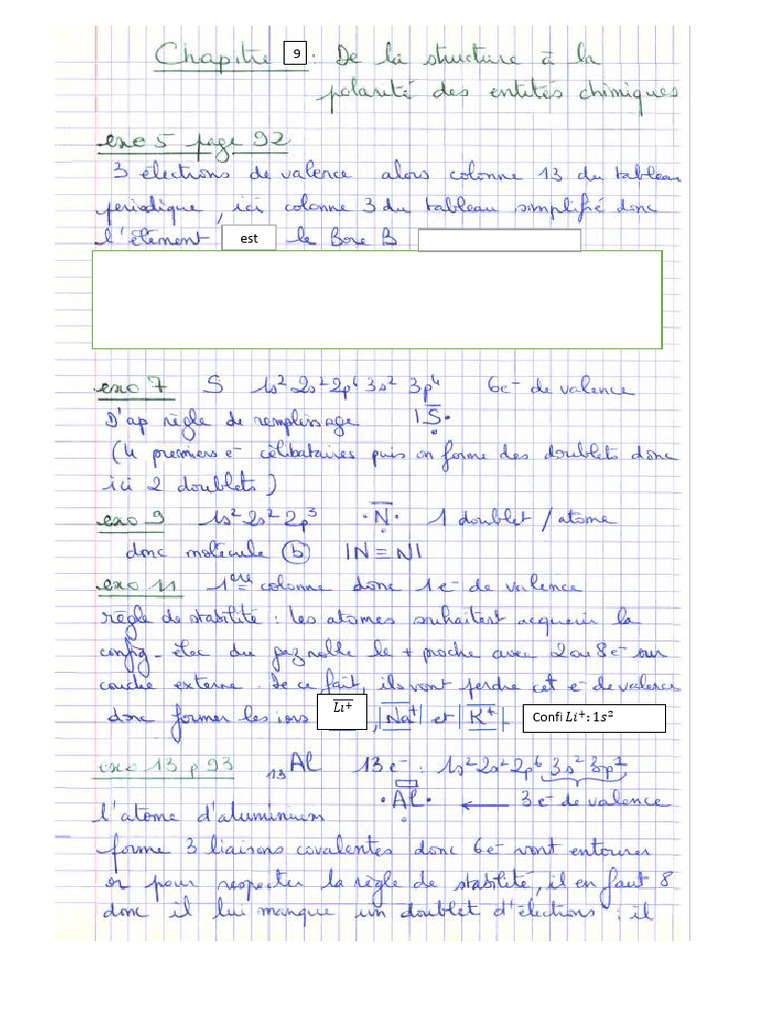 Chapitre 9 : De la structure à la
polarité des entités chimiques
exo 5 page 92
3 électrons de valence alors colonne 13 du tableau
periodique, ici colonne 3 du tableau simplifié donc
l'élément est le Bore B
exo 7 S 1s² 2s² 2p⁶ 3s² 3p⁴ 6e⁻ de valence
D'ap règle de remplissage |S̅·
(4 premiers e⁻ célibataires puis on forme des doublets donc
ici 2 doublets)
exo 9 1s² 2s² 2p³ ·N̅· 1 doublet / atome
donc molécule (b) |N≡N|
exo 11 1ère colonne donc 1e⁻ de valence
règle de stabilité : les atomes souhaitent acquerir la
config. élec du gaz noble le + proche avec 2 ou 8e⁻ sur
couche externe. De ce fait, ils vont perdre cet e⁻ de valence
donc former les ions Li⁺, |Na⁺| et |K⁺|. Confi Li⁺: 1s²
exo 13 p 93 ₁₃Al 13e⁻ : 1s² 2s² 2p⁶ 3s² 3p¹
·Al· ← 3e⁻ de valence
l'atome d'aluminium
forme 3 liaisons covalentes donc 6e⁻ vont entourer
or pour respecter la règle de stabilité, il en faut 8
donc il lui manque un doublet d'électrons : il